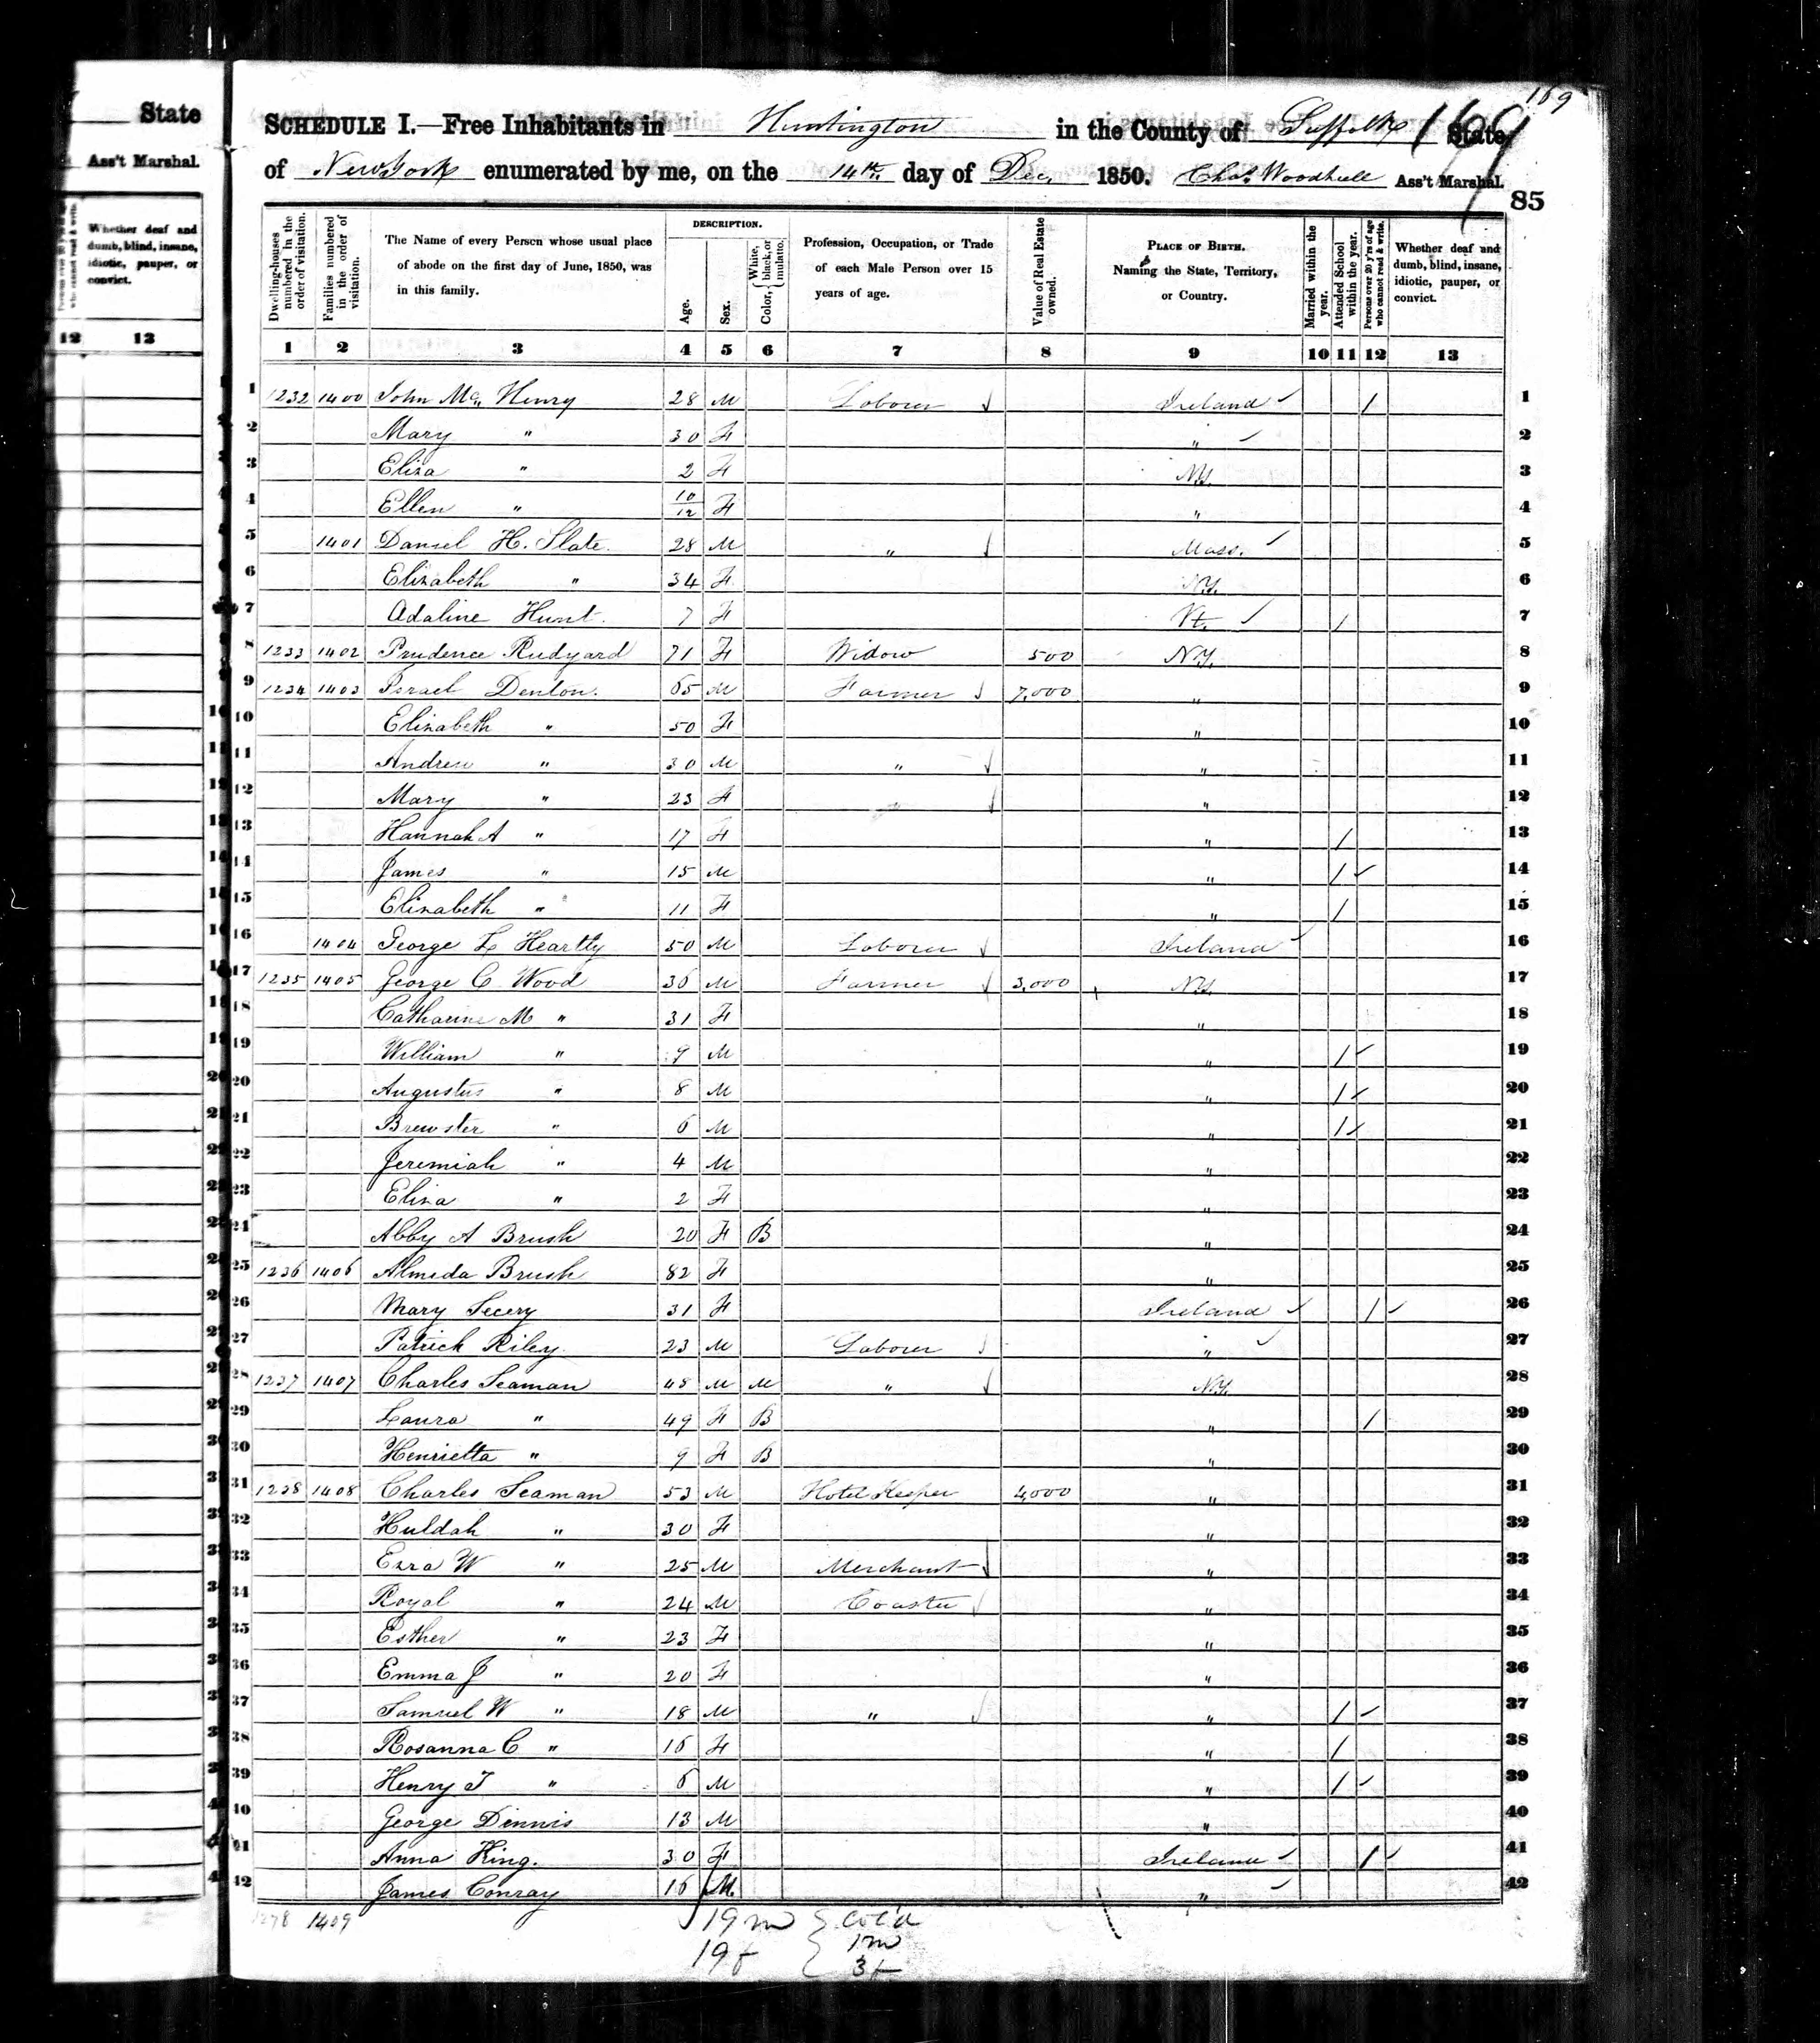 State
Ass't Marshal.
Whether deaf and
dumb, blind, insane,
idiotic, pauper, or
convict.
12 13
169
SCHEDULE I.—Free Inhabitants in Huntington in the County of Suffolk State
169
of New York enumerated by me, on the 14th day of Dec. 1850. Chas. Woodhull Ass't Marshal.
85
Dwelling-houses numbered in the order of visitation.
Families numbered in the order of visitation.
The Name of every Person whose usual place of abode on the first day of June, 1850, was in this family.
DESCRIPTION.
Age.
Sex.
Color, { White, black, or mulatto.
Profession, Occupation, or Trade of each Male Person over 15 years of age.
Value of Real Estate owned.
PLACE OF BIRTH. Naming the State, Territory, or Country.
Married within the year.
Attended School within the year.
Persons over 20 y'rs of age who cannot read & write.
Whether deaf and dumb, blind, insane, idiotic, pauper, or convict.
1 2 3 4 5 6 7 8 9 10 11 12 13
1 1232 1400 John Mc Henry 28 M Laborer Ireland 1 1
2 Mary " 30 F " 2
3 Eliza " 2 F NY. 3
4 Ellen " 10/12 F " 4
5 1401 Daniel H. Slate. 28 M " Mass. 5
6 Elizabeth " 34 F NY. 6
7 Adaline Hunt. 7 F Vt. 1 7
8 1233 1402 Prudence Rudyard 71 F Widow 500 NY. 8
9 1234 1403 Israel Denton. 65 M Farmer 7,000 " 9
10 Elizabeth " 50 F " 10
11 Andrew " 30 M " " 11
12 Mary " 23 F " 12
13 Hannah A " 17 F " 1 13
14 James " 15 M " 1 14
15 Elizabeth " 11 F " 1 15
16 1404 George L Heartty 50 M Laborer Ireland 16
17 1235 1405 George C. Wood 36 M Farmer 3,000 NY. 17
18 Catharine M " 31 F " 18
19 William " 9 M " 1 19
20 Augustus " 8 M " 1 20
21 Brewster " 6 M " 1 21
22 Jeremiah " 4 M " 22
23 Eliza " 2 F " 23
24 Abby A Brush 20 F B " 24
25 1236 1406 Almeda Brush 82 F " 25
26 Mary Secery 31 F Ireland 1 26
27 Patrick Riley. 23 M Laborer " 27
28 1237 1407 Charles Seaman 48 M M " NY. 28
29 Laura " 49 F B " 1 29
30 Henrietta " 9 F B " 30
31 1238 1408 Charles Seaman 53 M Hotel Keeper 4,000 " 31
32 Huldah " 30 F " 32
33 Ezra W " 25 M Merchant " 33
34 Royal " 24 M Coaster " 34
35 Esther " 23 F " 35
36 Emma J " 20 F " 36
37 Samuel W " 18 M " " 1 37
38 Rosanna C " 16 F " 1 38
39 Henry T " 6 M " 1 39
40 George Dinnis 13 M " 40
41 Anna King. 30 F Ireland 1 41
42 James Conray 16 M. " 42
1409
19 m } Col'd
19 f } 1 m
3 f